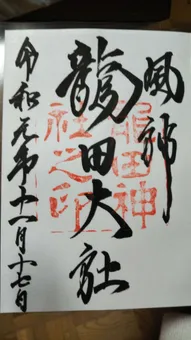 風神
龍田大社
龍田神社之印
令和元年十一月十七日